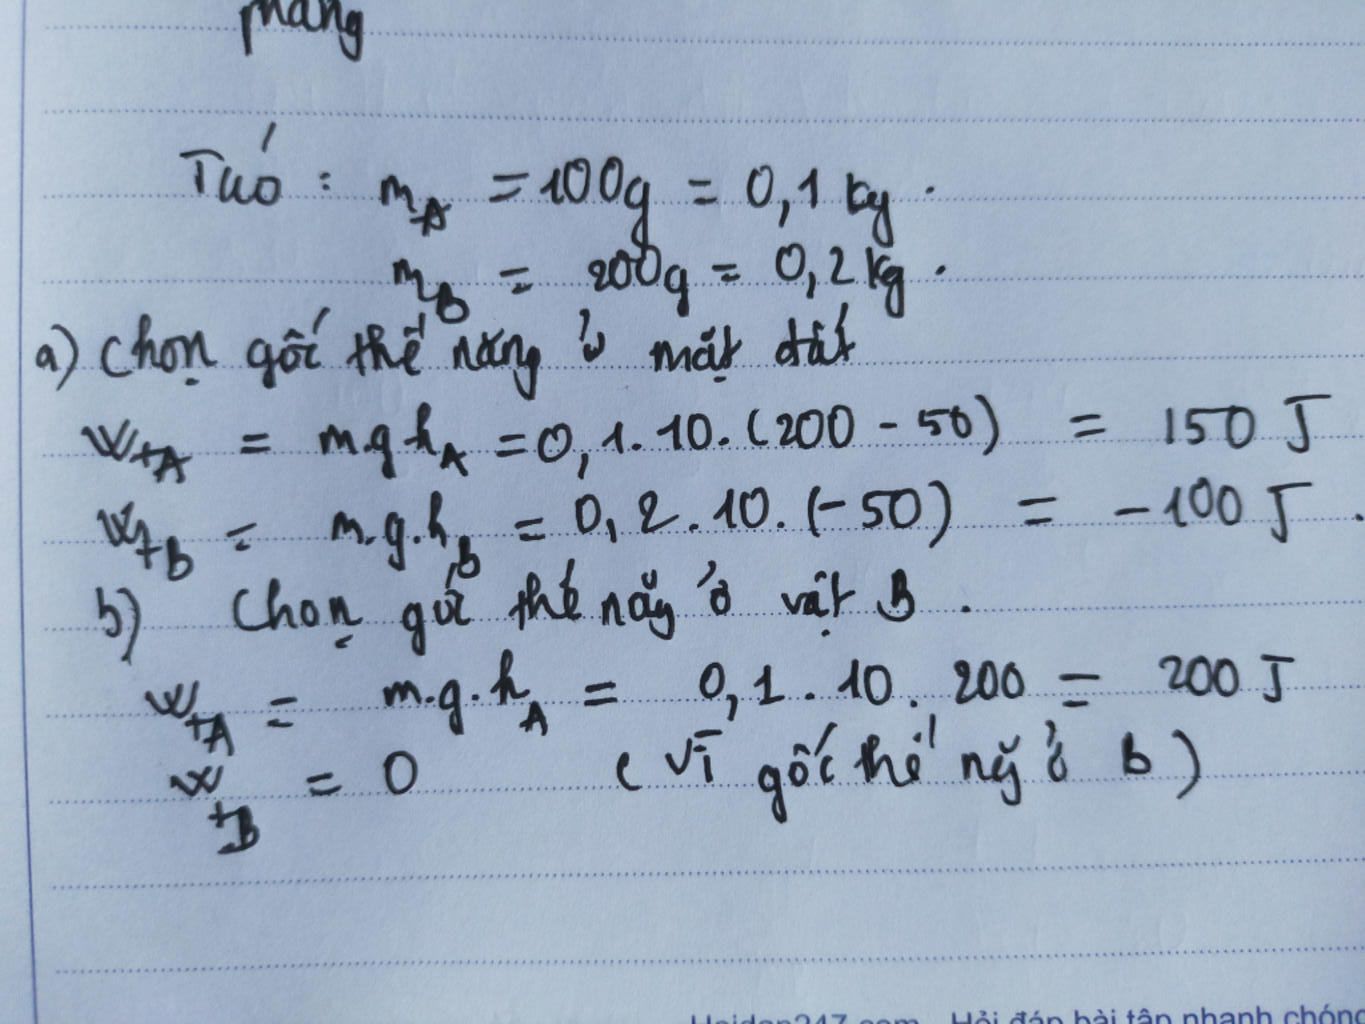 phẳng
Tuó : mA = 100g = 0,1 kg.
mB = 200g = 0,2 kg.
a) Chọn gốc thế năng ở mặt đất
WtA = m.g hA = 0,1.10.(200 - 50) = 150 J
WtB = m.g.hB = 0,2.10.(-50) = -100 J.
b) Chọn gốc thế năg ở vật B.
WtA = m.g.hA = 0,1.10.200 = 200 J
WtB = 0 (Vì gốc thế ng ở B)
Hoidap247.com Hỏi đáp bài tập nhanh chóng